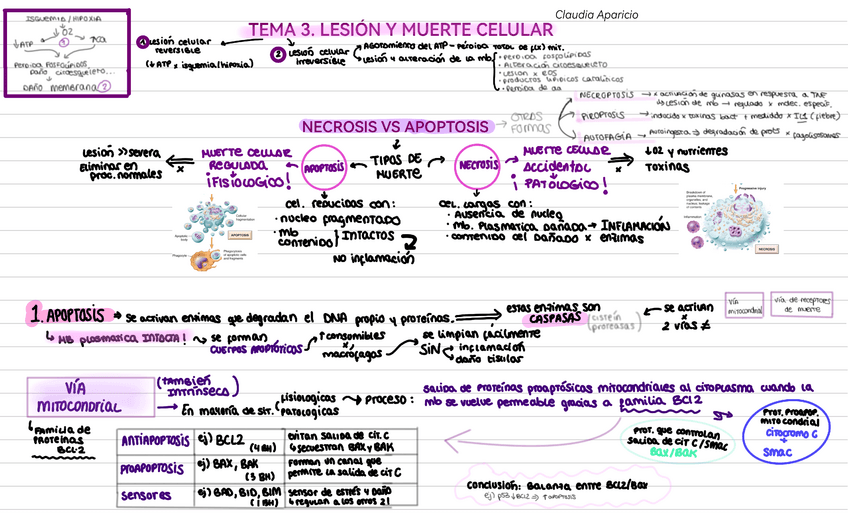 Claudia Aparicio
TEMA 3. LESIÓN Y MUERTE CELULAR
ISQUEMIA / HIPOXIA
↓O2
↓ATP
↑Ca
Pérdida fosfolípidos,
daño citoesqueleto...
DAÑO membrana 2
1 Lesión celular
reversible
(↓ATP x isquemia/hipoxia)
2 Lesión celular
irreversible
Agotamiento del ATP - pérdida total de f(x) mit.
Lesión y alteración de la mb
• Pérdida fosfolípidos
• Alteración citoesqueleto
• Lesión x ROS
• productos lipídicos catalíticos
• Pérdida de aa
NECROSIS VS APOPTOSIS
OTRAS
FORMAS
NECROPTOSIS → x activación de quinasas en respuesta a TNF
↳ Lesión de mb → regulado x mdec. especif.
PIROPTOSIS → inducido x toxinas bact + mediado x IL1 (fiebre)
AUTOFAGIA → Autoingesta → degradación de prots x fagolisosomas
Lesión >> severa
Eliminar en
proc. normales
MUERTE CELULAR
REGULADA
¡FISIOLÓGICO!
APOPTOSIS
TIPOS DE
MUERTE
NECROSIS
MUERTE CELULAR
ACCIDENTAL
¡PATOLÓGICO!
↓O2 y nutrientes
TOXINAS
cel. reducidas con:
• núcleo fragmentado
• mb
contenido } INTACTOS
NO inflamación
cel. largas con:
• Ausencia de núcleo
• mb. Plasmática dañada → INFLAMACIÓN
• contenido cel dañado x enzimas
Cellular fragmentation
Apoptotic body
APOPTOSIS
Phagocyte
Phagocytosis of apoptotic cells and fragments
Progressive injury
Breakdown of plasma membrane, organelles, and nucleus; leakage of contents
Inflammation
NECROSIS
1. APOPTOSIS → se activan enzimas que degradan el DNA propio y proteínas.
estas enzimas son
CASPASAS
(cisteín proteasas)
se activan
x
2 vías ≠
vía mitocondrial
vía de receptores de muerte
↳ MB plasmática INTACTA! → se forman
CUERPOS APOPTÓTICOS
↑ consumibles
x
macrófagos
se limpian fácilmente
SIN
inflamación
daño tisular
VÍA
MITOCONDRIAL
(TAMBIÉN
INTRÍNSECA)
→ En mayoría de sit.
fisiológicas
patológicas
→ Proceso:
salida de proteínas proaptósicas mitocondriales al citoplasma cuando la
mb se vuelve permeable gracias a familia BCL2
↳ Familia de
proteínas
BCL2
ANTIAPOPTOSIS ej) BCL2 (4BH) evitan salida de cit. C
↳ secuestran BAX y BAK
PROAPOPTOSIS ej) BAX, BAK (3 BH) forman un canal que
permite la salida de cit C
SENSORES ej) BAD, BID, BIM (1 BH) sensor de estrés y daño
↳ regulan a los otros 2!
Prot. que controlan
salida de cit C/SMAC
BAX/BAK
Prot. proapop.
mitocondrial
citocromo C
+
SMAC
Conclusión: Balanza entre BCL2/Bax
ej) p53 ↓BCL2 ⇒ ↑apoptosis